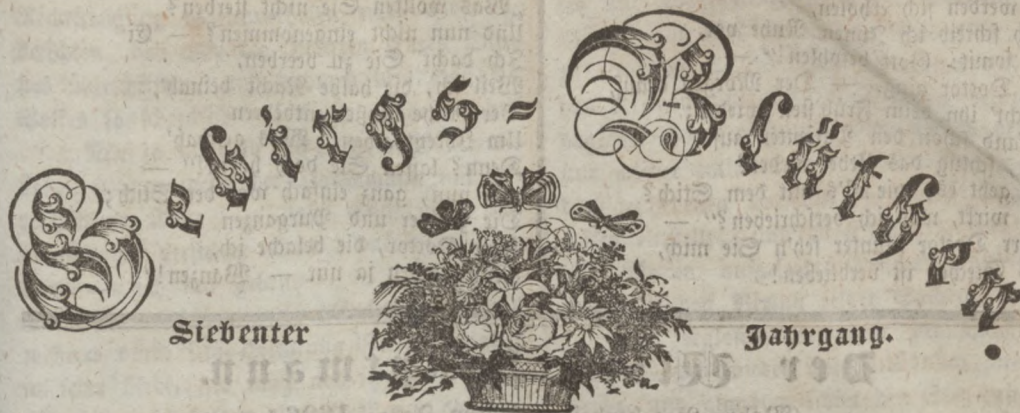 Gebirgs-Blüthen.
Siebenter Jahrgang.